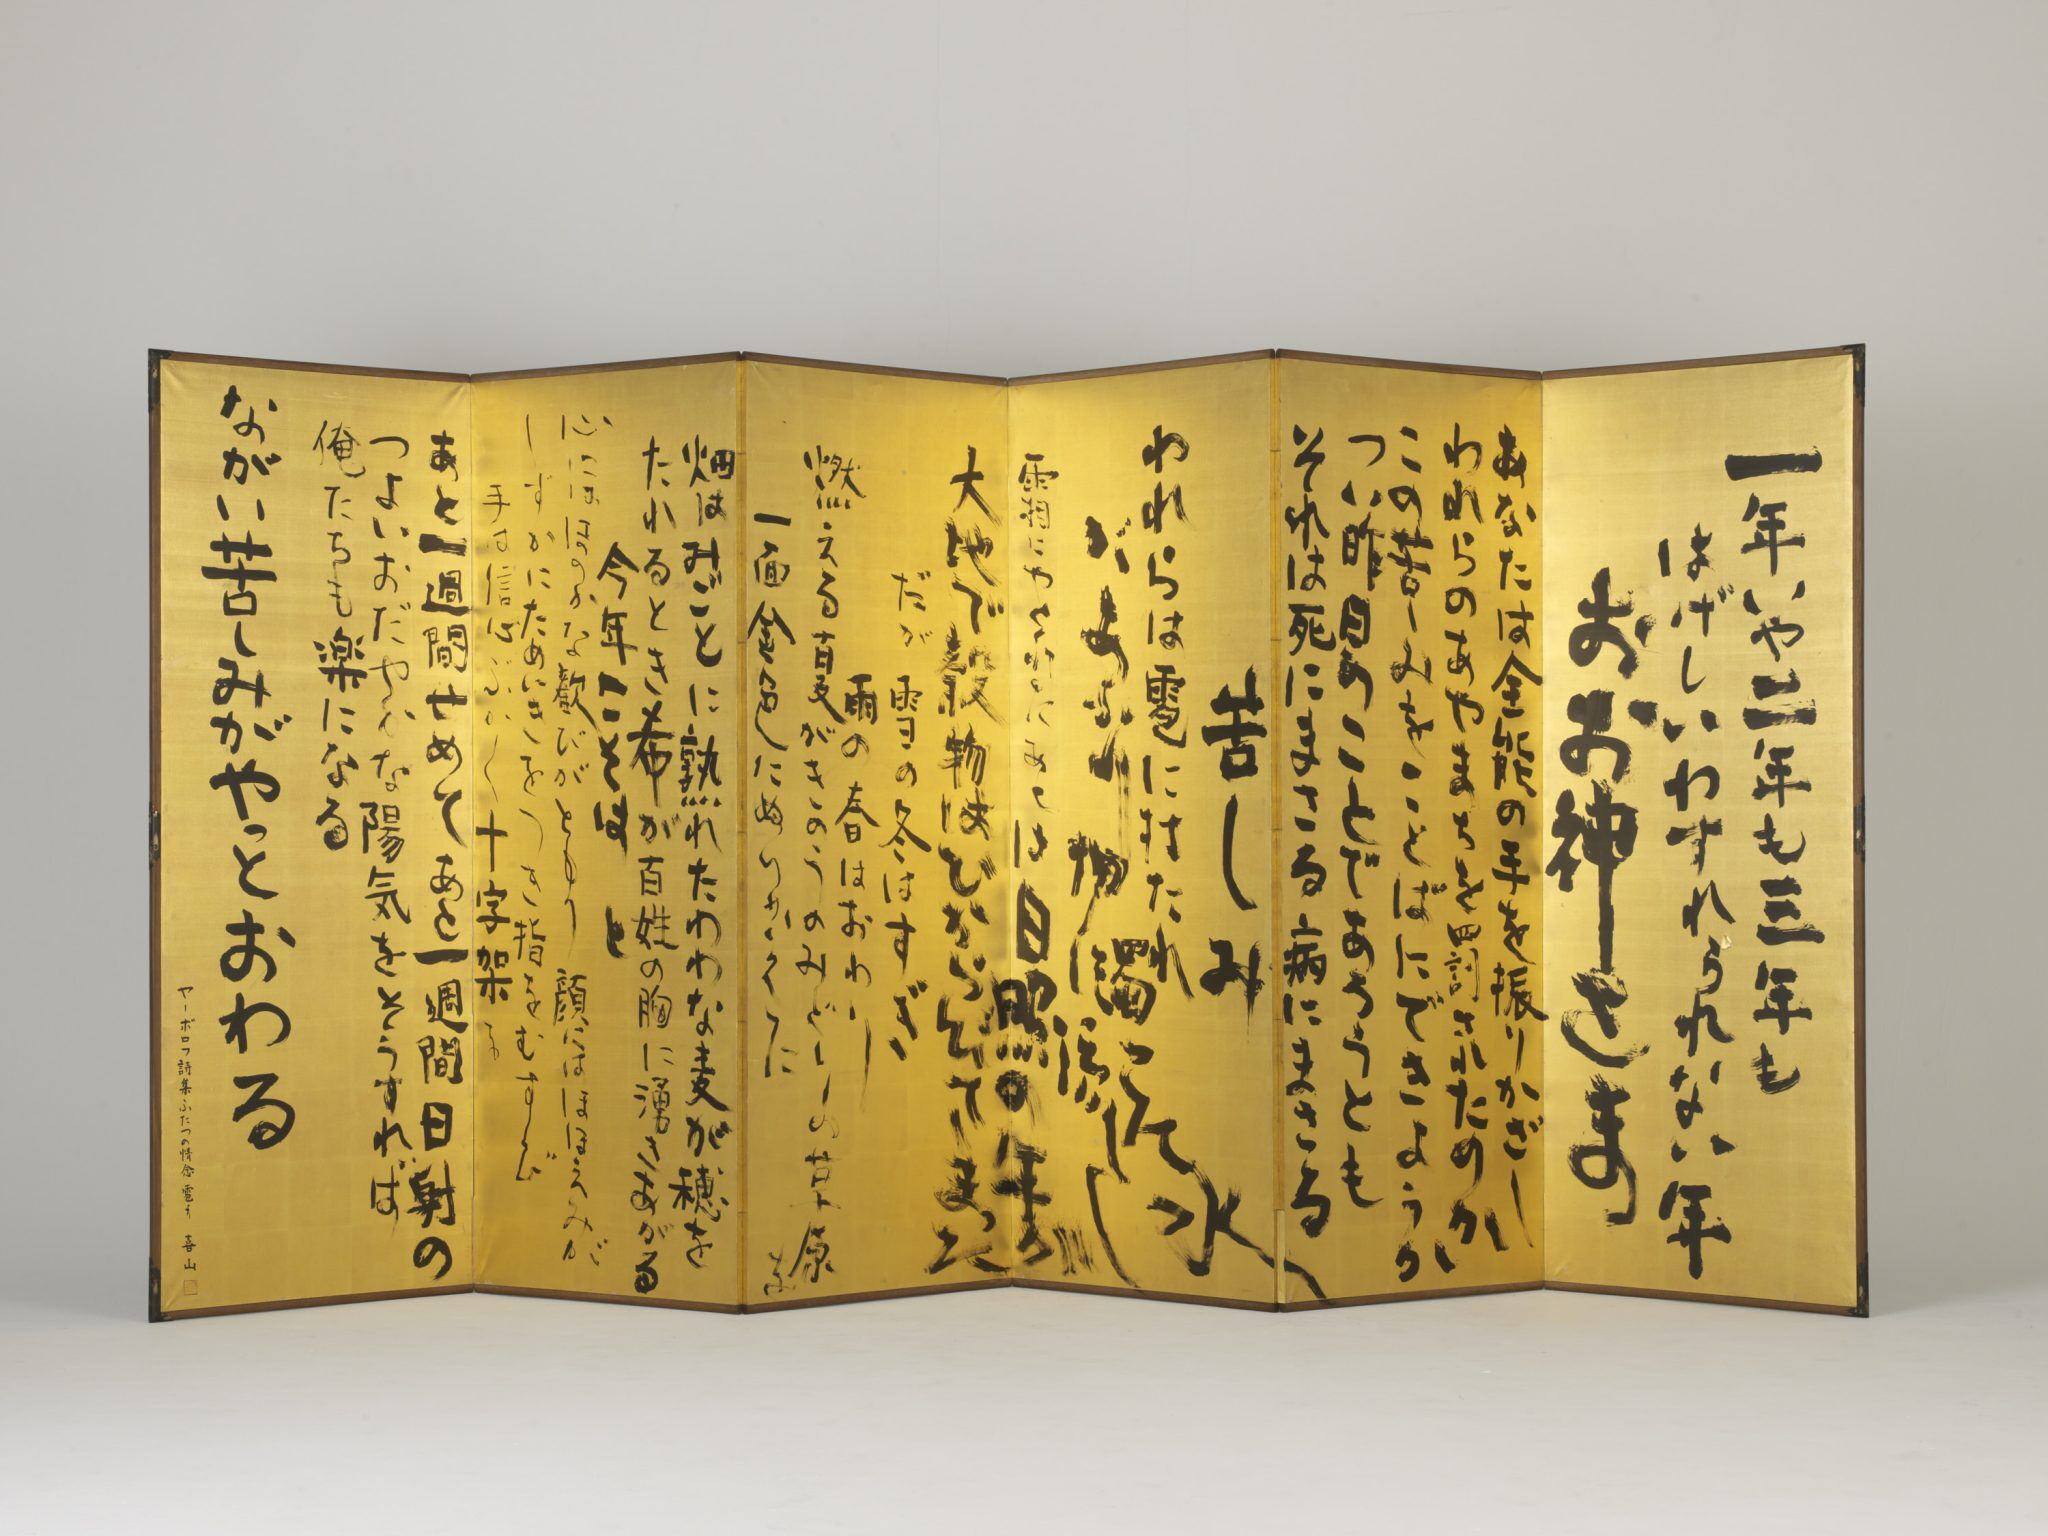 一年いや二年も三年も
はげしいわすれられない年
おお神さま
あなたは全能の手を振りかざし
われらのあやまちを罰されたためか
この苦しみをことばにできようか
つい昨日のことであろうとも
それは死にまさる病にまさる
苦しみ
われらは雹にはたれ
濁って水
があふれ 押し流し
霜にやられ
にあっては日照の年
大地で穀物はひからびてしまった
だが 雪の冬はすぎ
雨の春はおわり
燃える夏がきのうのみどりの草原
一面金色にためらいがちに
畑はみごとに熟れたわわな麦が穂を
たれるとき希が百姓の胸に湧きあがる
今年こそは と
心にはほのかな歓びがともり 顔にはほほえみが
しずかにためいきをつき指をむすんだ
手は信ぶかく十字架を
あと一週間せめてあと一週間日射の
つよいおだやかな陽気をとうすれば
俺たちも楽になる
ながい苦しみがやっとおわる
ヤーボロフ詩集ふたつの情念 雹より 喜山